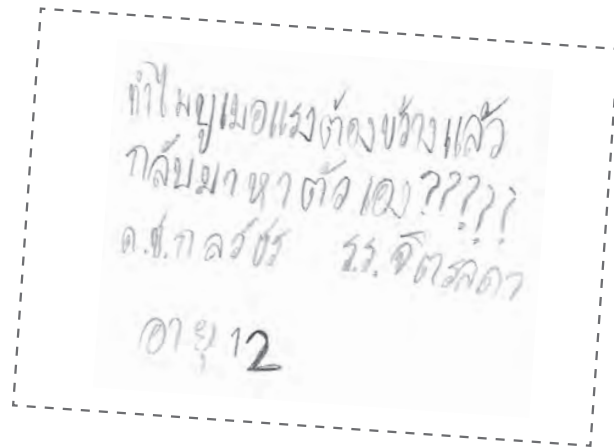 ทำไมบูเมอแรงต้องขว้างแล้ว
กลับมาหาตัวเอง?????
ด.ช.กลวัชร ร.ร.จิตรลดา
อายุ 12